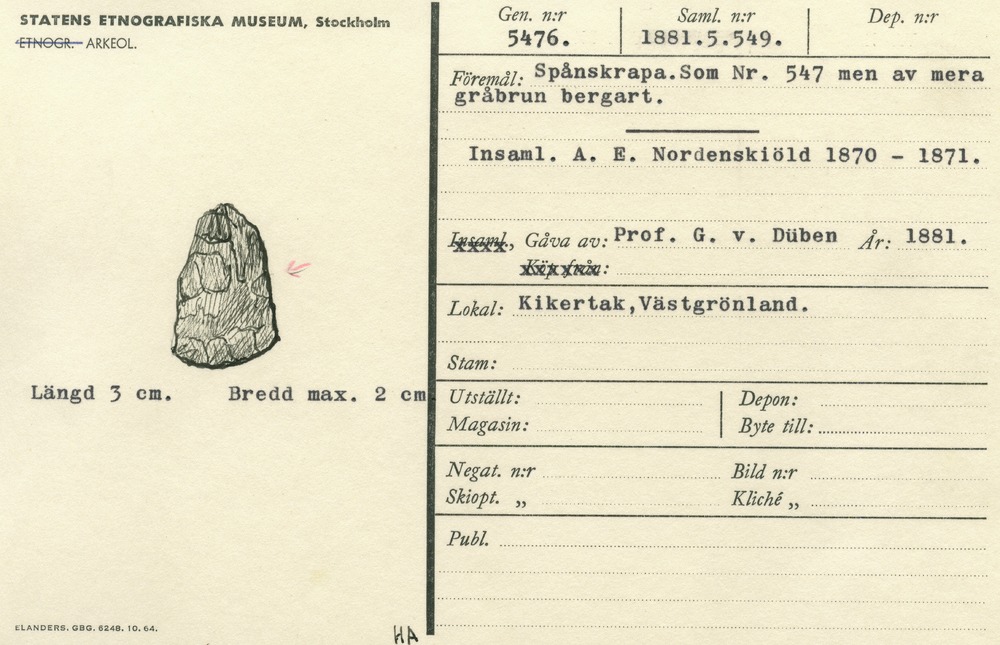 STATENS ETNOGRAFISKA MUSEUM, Stockholm
ETNOGR. ARKEOL.
Gen. n:r
5476.
Saml. n:r
1881.5.549.
Dep. n:r
Föremål: Spånskrapa.Som Nr. 547 men av mera
gråbrun bergart.
Insaml. A. E. Nordenskiöld 1870 - 1871.
Insaml., Gåva av: Prof. G. v. Düben År: 1881.
Köp från:
Lokal: Kikertak,Västgrönland.
Stam:
Längd 3 cm. Bredd max. 2 cm
Utställt:
Depon:
Magasin:
Byte till:
Negat. n:r
Bild n:r
Skiopt. „
Kliché „
Publ.
ELANDERS. GBG. 6248. 10. 64.
HA